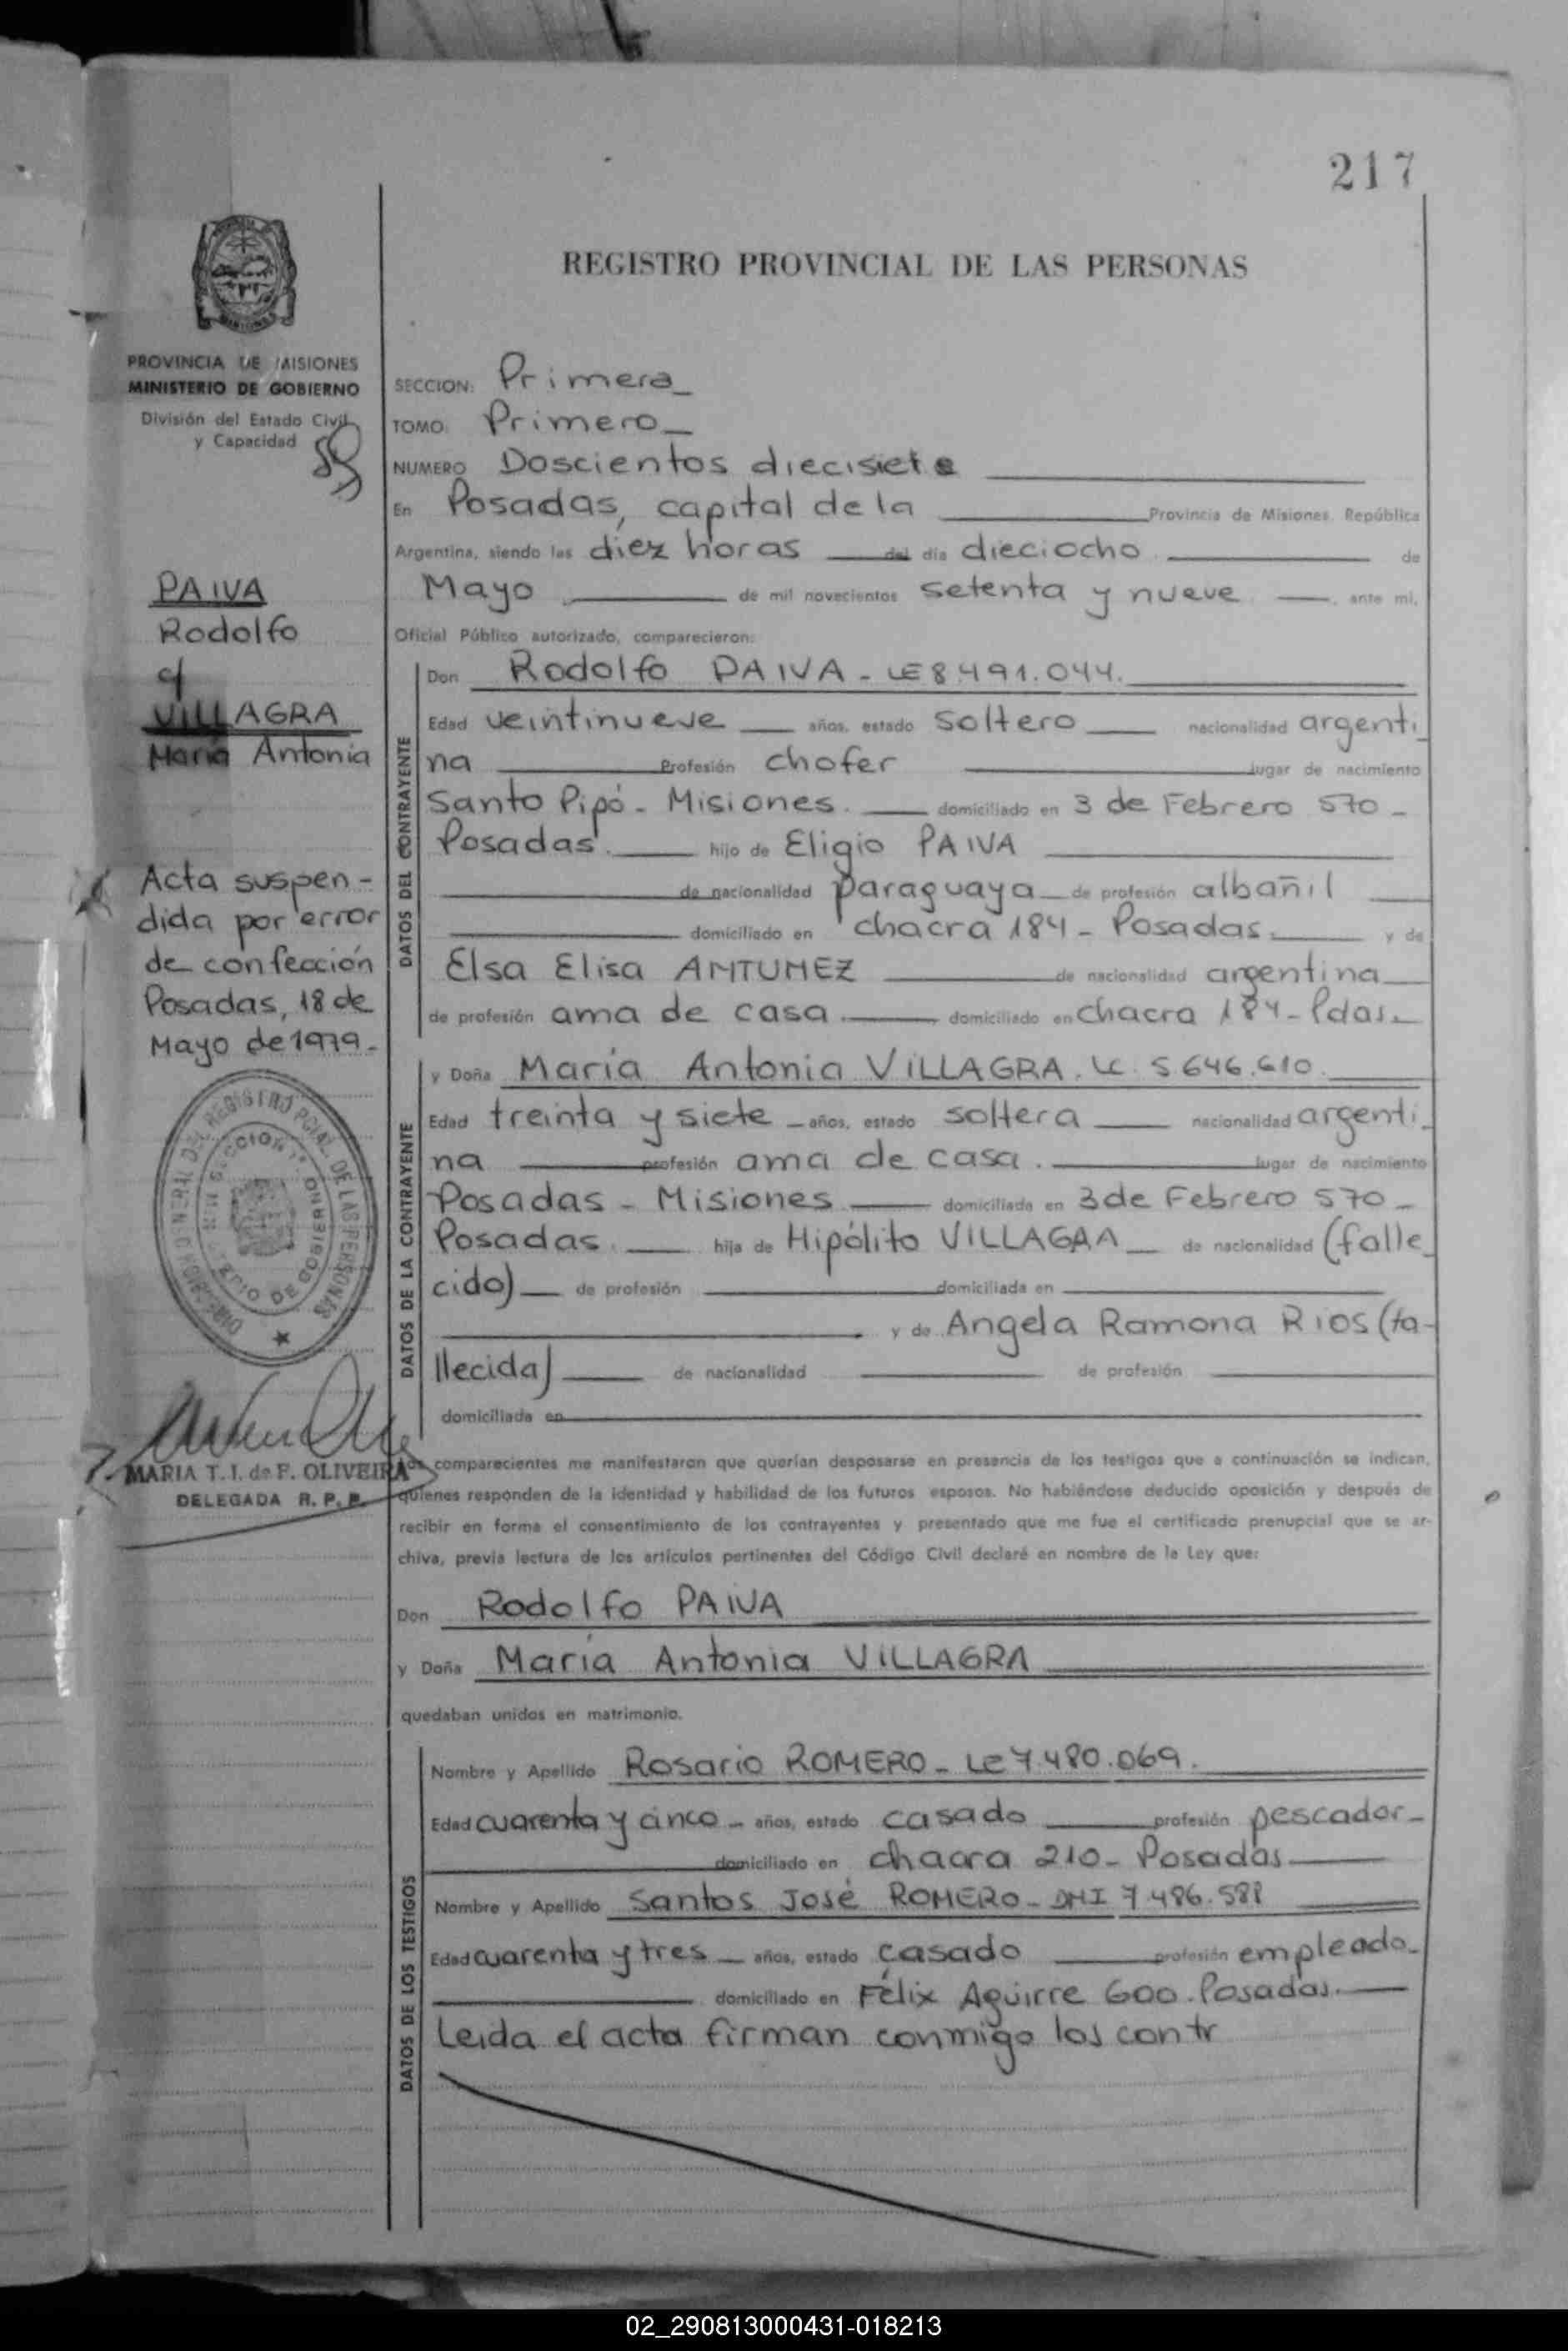 217
REGISTRO PROVINCIAL DE LAS PERSONAS
PROVINCIA DE MISIONES
MINISTERIO DE GOBIERNO
División del Estado Civil
y Capacidad
PAIVA
Rodolfo
c/
VILLAGRA
María Antonia
Acta suspen-
dida por error
de confección
Posadas, 18 de
Mayo de 1979.-
DIRECCION GENERAL DEL REGISTRO PCIAL. DE LAS PERSONAS
MARIA T. I. de F. OLIVEIRA
DELEGADA R. P. P.
SECCION: Primera_
TOMO: Primero_
NUMERO Doscientos diecisiete
En Posadas, capital de la Provincia de Misiones, República
Argentina, siendo las diez horas del día dieciocho de
Mayo de mil novecientos setenta y nueve, ante mí,
Oficial Público autorizado, comparecieron:
DATOS DEL CONTRAYENTE
Don Rodolfo PAIVA - LE 8.491.044.
Edad veintinueve años, estado soltero nacionalidad argenti_
na Profesión chofer lugar de nacimiento
Santo Pipó - Misiones. domiciliado en 3 de Febrero 570 -
Posadas. hijo de Eligio PAIVA
de nacionalidad paraguaya de profesión albañil
domiciliado en chacra 184 - Posadas. y de
Elsa Elisa ANTUNEZ de nacionalidad argentina
de profesión ama de casa. domiciliado en chacra 184 - Pdas.
DATOS DE LA CONTRAYENTE
y Doña María Antonia VILLAGRA. LC 5.646.610.
Edad treinta y siete años, estado soltera nacionalidad argenti_
na profesión ama de casa. lugar de nacimiento
Posadas - Misiones domiciliada en 3 de Febrero 570 -
Posadas. hija de Hipólito VILLAGRA de nacionalidad (falle_
cido) de profesión domiciliada en
y de Angela Ramona RIOS (fa-
llecida) de nacionalidad de profesión
domiciliada en
Los comparecientes me manifestaron que querían desposarse en presencia de los testigos que a continuación se indican,
quienes responden de la identidad y habilidad de los futuros esposos. No habiéndose deducido oposición y después de
recibir en forma el consentimiento de los contrayentes y presentado que me fue el certificado prenupcial que se ar-
chiva, previa lectura de los artículos pertinentes del Código Civil declaré en nombre de la Ley que:
Don Rodolfo PAIVA
y Doña María Antonia VILLAGRA
quedaban unidos en matrimonio.
DATOS DE LOS TESTIGOS
Nombre y Apellido Rosario ROMERO - LE 7.480.069.
Edad cuarenta y cinco - años, estado casado profesión pescador -
domiciliado en chacra 210 - Posadas
Nombre y Apellido Santos José ROMERO - DNI 7.486.588
Edad cuarenta y tres años, estado casado profesión empleado -
domiciliado en Félix Aguirre 600. Posadas.
Leida el acta firman conmigo los contr
02_290813000431-018213